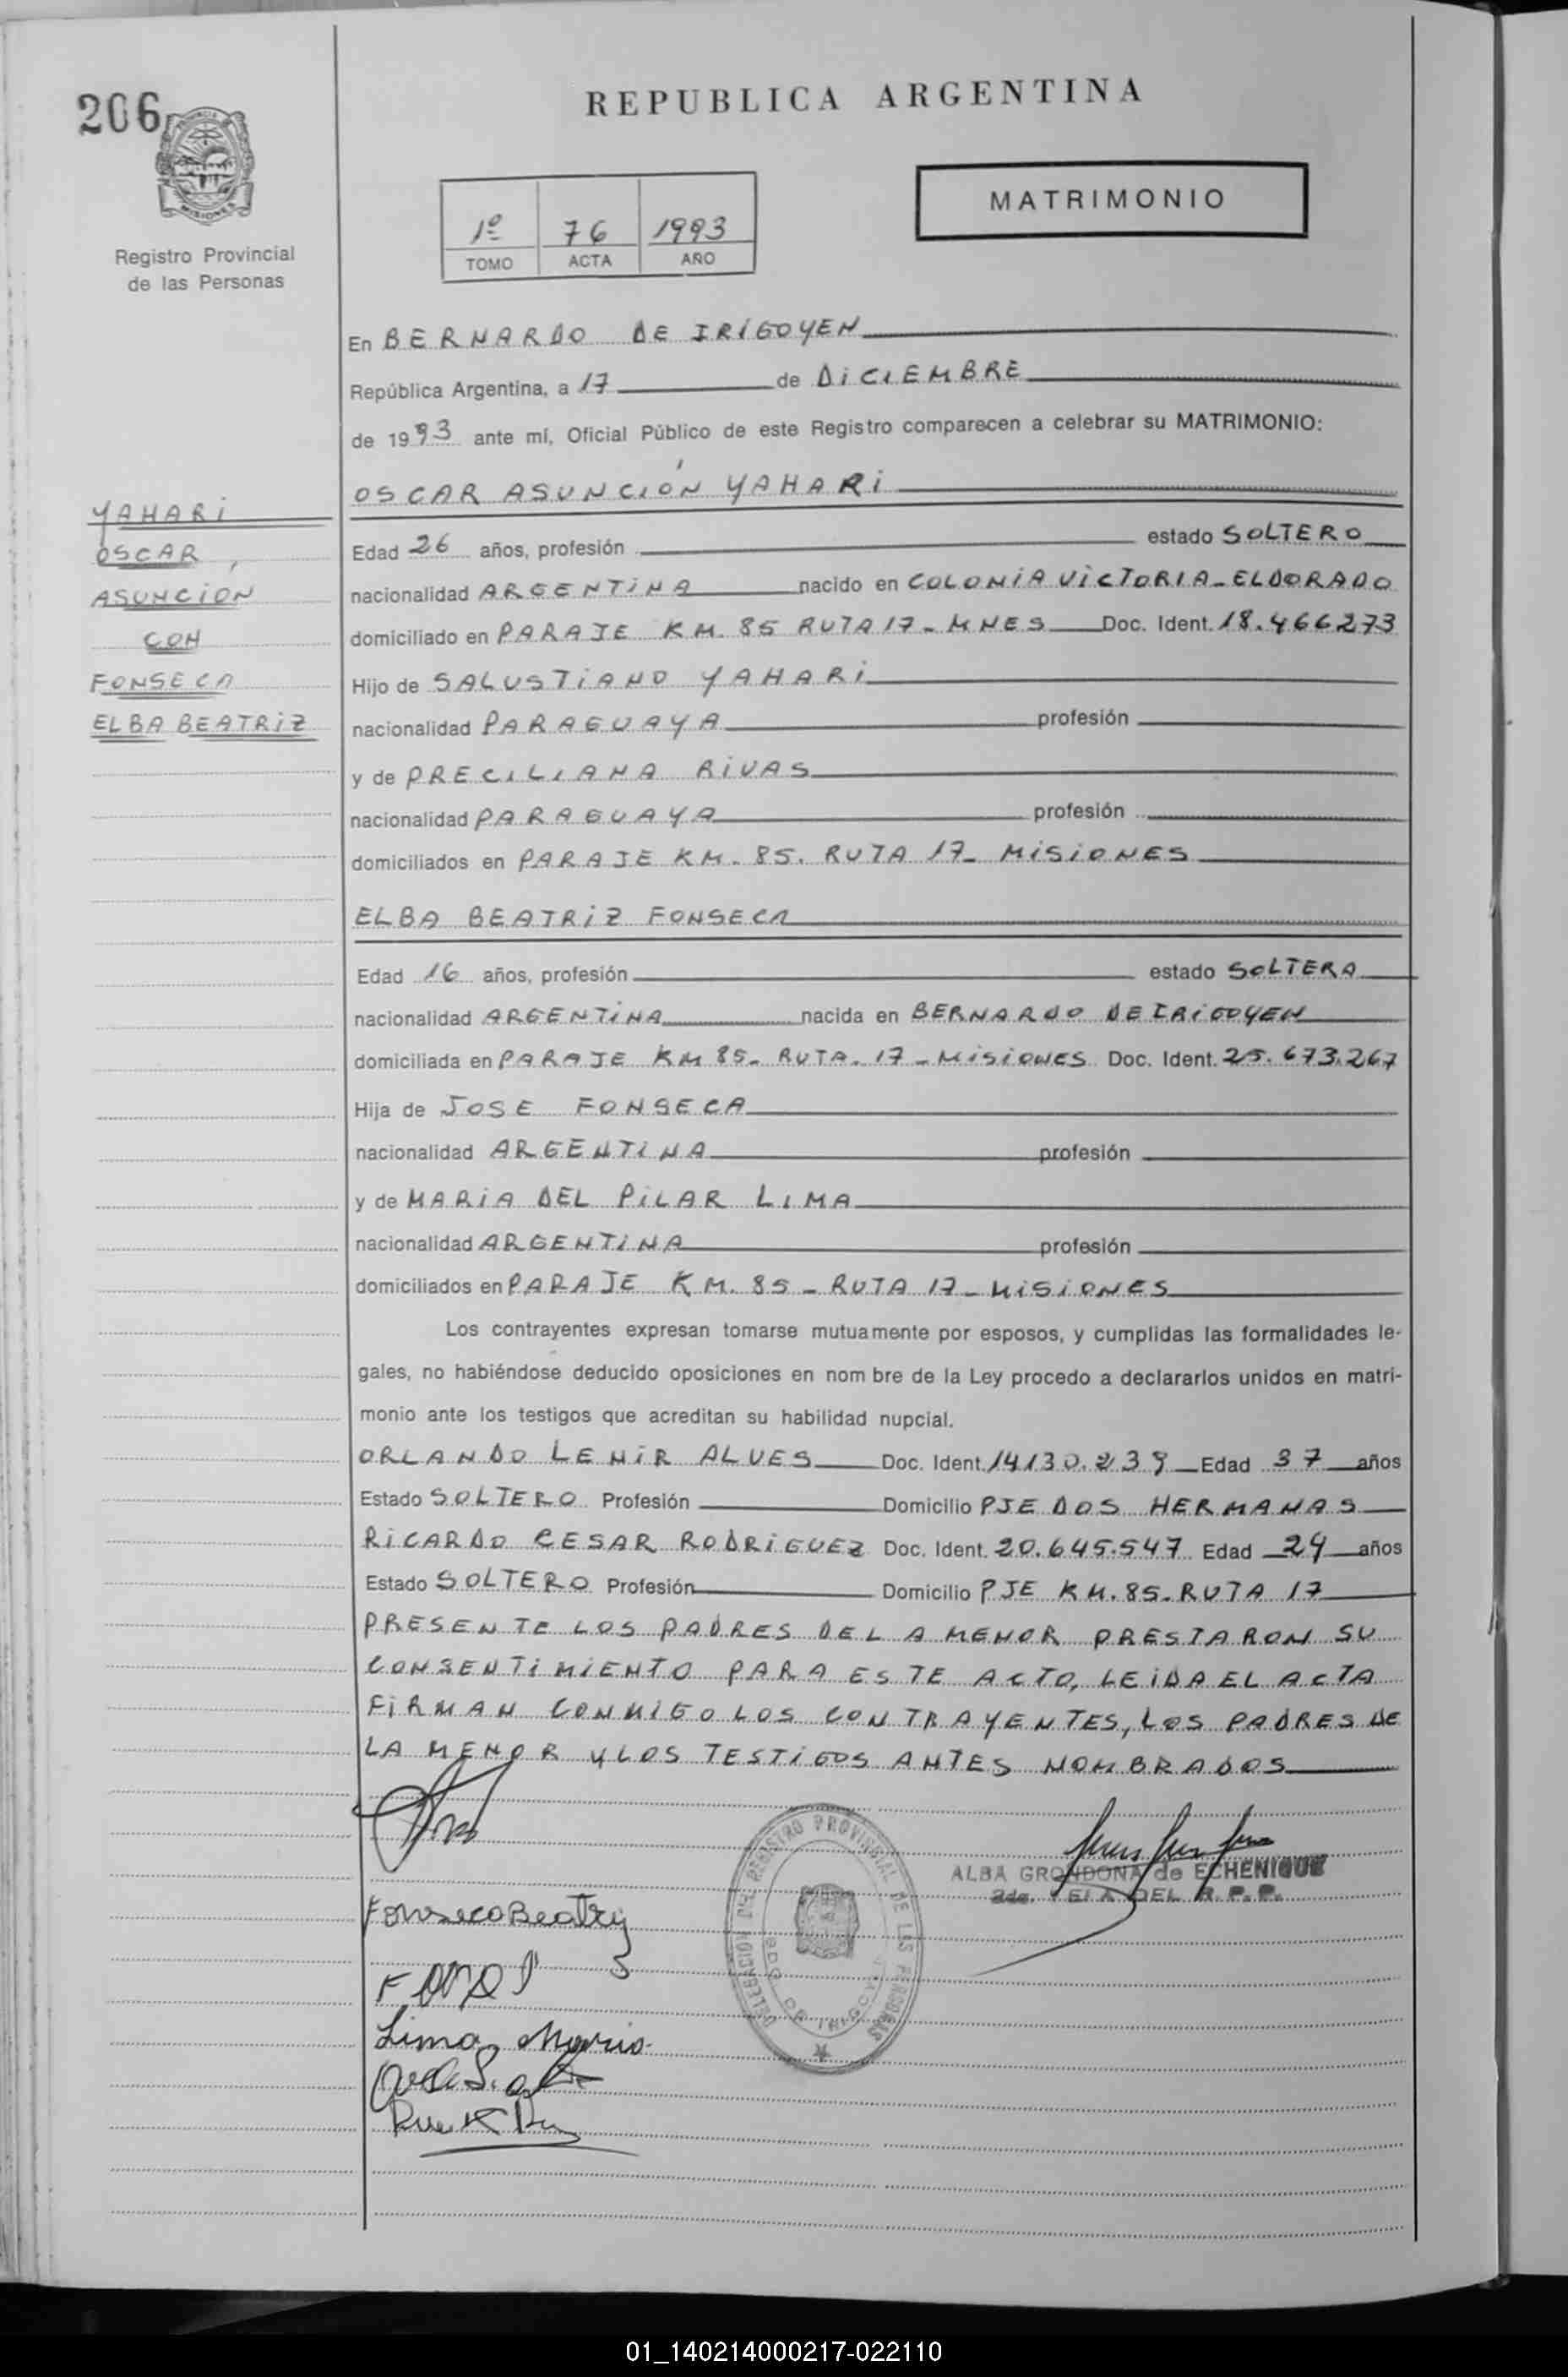 206
REPUBLICA ARGENTINA
MISIONES
Registro Provincial
de las Personas
1º 76 1993
TOMO ACTA AÑO
MATRIMONIO
En BERNARDO DE IRIGOYEN
República Argentina, a 17 de DICIEMBRE
de 1993 ante mí, Oficial Público de este Registro comparecen a celebrar su MATRIMONIO:
YAHARI
OSCAR
ASUNCIÓN
CON
FONSECA
ELBA BEATRIZ
OSCAR ASUNCIÓN YAHARI
Edad 26 años, profesión estado SOLTERO
nacionalidad ARGENTINA nacido en COLONIA VICTORIA-ELDORADO
domiciliado en PARAJE KM. 85 RUTA 17-MNES Doc. Ident. 18.466273
Hijo de SALUSTIANO YAHARI
nacionalidad PARAGUAYA profesión
y de PRECILIANA RIVAS
nacionalidad PARAGUAYA profesión
domiciliados en PARAJE KM. 85. RUTA 17- MISIONES
ELBA BEATRIZ FONSECA
Edad 16 años, profesión estado SOLTERA
nacionalidad ARGENTINA nacida en BERNARDO DE IRIGOYEN
domiciliada en PARAJE KM 85- RUTA. 17-MISIONES Doc. Ident. 25.673.267
Hija de JOSE FONSECA
nacionalidad ARGENTINA profesión
y de MARIA DEL PILAR LIMA
nacionalidad ARGENTINA profesión
domiciliados en PARAJE KM. 85- RUTA 17-MISIONES
Los contrayentes expresan tomarse mutuamente por esposos, y cumplidas las formalidades le-
gales, no habiéndose deducido oposiciones en nom bre de la Ley procedo a declararlos unidos en matri-
monio ante los testigos que acreditan su habilidad nupcial.
ORLANDO LENIR ALVES Doc. Ident. 14130.239 Edad 37 años
Estado SOLTERO Profesión Domicilio PJE DOS HERMANAS
RICARDO CESAR RODRIGUEZ Doc. Ident. 20.645.547 Edad 24 años
Estado SOLTERO Profesión Domicilio PJE KM.85-RUTA 17
PRESENTE LOS PADRES DE LA MENOR PRESTARON SU
CONSENTIMIENTO PARA ESTE ACTO, LEIDA EL ACTA
FIRMAN CONMIGO LOS CONTRAYENTES, LOS PADRES DE
LA MENOR Y LOS TESTIGOS ANTES NOMBRADOS
DELEGACION DEL REGISTRO PROVINCIAL DE LAS PERSONAS
BDO. DE IRIGOYEN
ALBA GRONDONA de ECHENIQUE
DEL R. P. P.
Fonseca Beatriz
Lima Maria
01_140214000217-022110